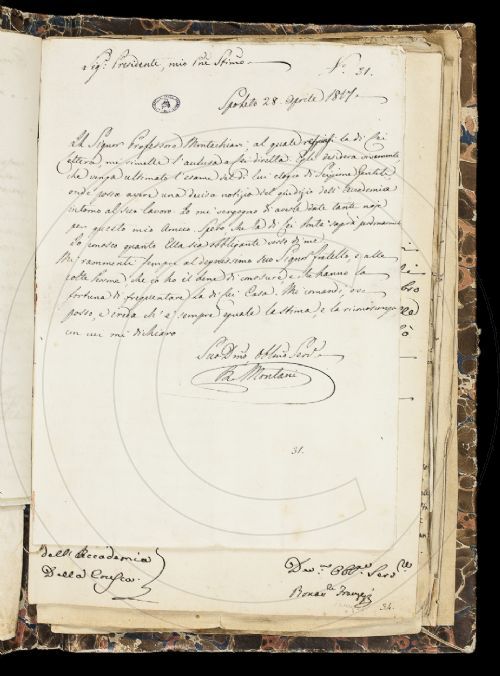 Sigr. Presidente, mio Pne Stimo.
No. 31.
Spoleto 28. Aprile 1817.
Il Signor Professore Montechiari, al quale la di Lei
lettera, mi rimette l'acclusa a Lei diretta. Egli desidera vivamente
che venga ultimato l'esame del di lui elogio di Scipione Gentili,
onde possa avere una decisa notizia del giudizio dell'Accademia
intorno al suo lavoro. Io mi vergogno di averle date tante noje
per questo mio Amico. Spero, che la di Lei bontà saprà perdonarmi.
Io conosco quanto Ella sia obbligante verso di me.
Mi rammenti sempre al degnissimo suo Signor fratello, e alle
colte Persone, che io ho il bene di conoscere e che hanno la
fortuna di frequentare la di Lei Casa. Mi comandi, ove
posso, e creda ch'è sempre eguale la stima, e la riconoscenza
con cui mi dichiaro
Suo Dmo Obbmo Servre
Montani
31.
dell'Accademia
Della Crusca
Dev.mo Obb.mo Serv.re
34.